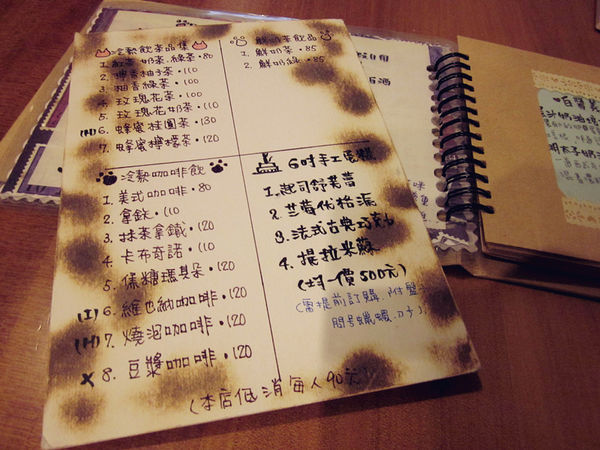 冷熱飲茶品集
1. 紅茶.奶茶.綠茶.80
2. 博香柚子茶.110
3. 柚香綠茶.100
4. 玫瑰花茶.100
5. 玫瑰花奶茶.110
(H)6. 蜂蜜桂圓茶.130
7. 蜂蜜檸檬茶.120
鮮奶茶飲品
1. 鮮奶茶.85
2. 鮮奶綠.85
冷熱咖啡飲
1. 美式咖啡.80
2. 拿鐵.110
3. 抹茶拿鐵.120
4. 卡布奇諾.110
5. 焦糖瑪其朵.120
(I)6. 維也納咖啡.120
(H)7. 燒泡咖啡.120
X 8. 豆漿咖啡.120
6吋手工蛋糕
1. 起司舒芙蕾
2. 芝莓優格派
3. 法式古典巧克力
4. 提拉米蘇
(均一價500元)
(需提前訂購.附盤子
問号蠟蠋.刀子)
(本店低消每人90元)